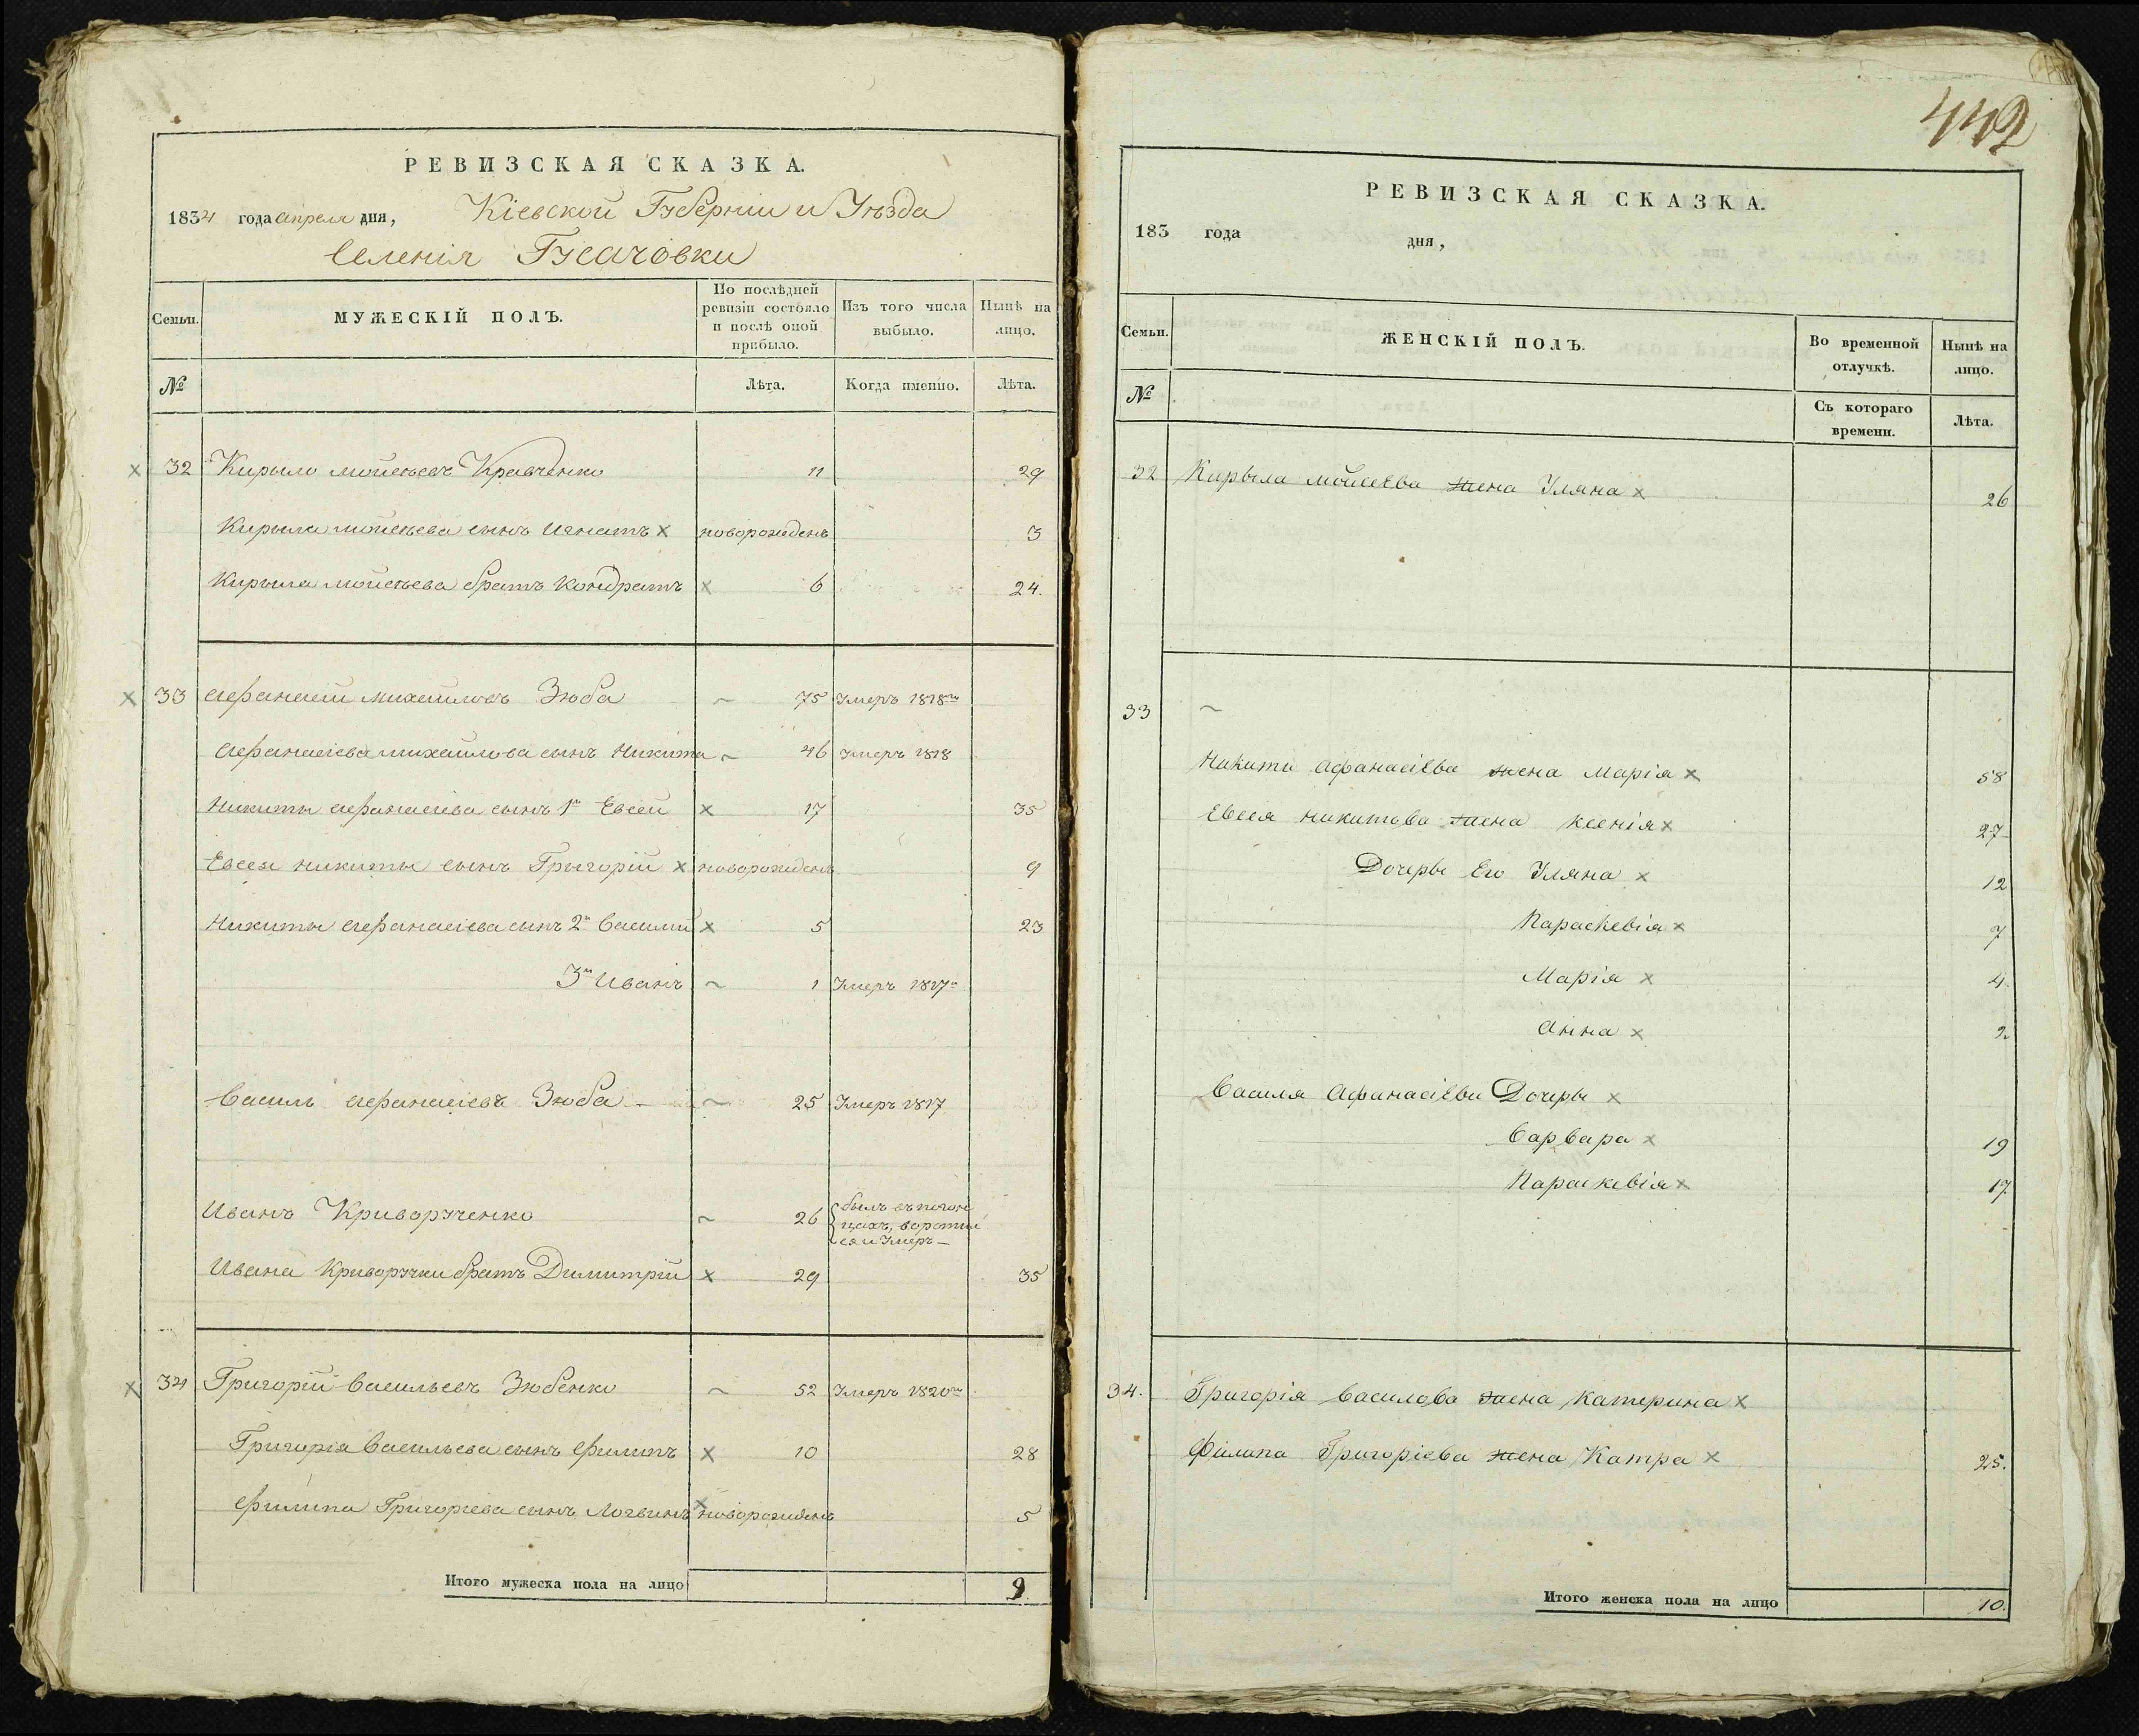 РЕВИЗСКАЯ СКАЗКА.
1834 года апреля дня, Кіевской Губерніи и Уѣзда
Селенія Гусачовки
Семьи.
МУЖЕСКІЙ ПОЛЪ.
По послѣдней ревизіи состояло и послѣ оной прибыло.
Изъ того числа выбыло.
Нынѣ на лицо.
№
Лѣта.
Когда именно.
Лѣта.
32 Кирыло мойсѣевъ Кравченко 11 29
Кирыла мойсѣева сынъ Игнатъ х новорожденъ 3
Кирыла мойсѣева братъ Кондратъ х 6 24.
33 Афанасій михайловъ Зюба ~ 75 Умеръ 1818
Афанасіева михайлова сынъ Никита ~ 46 Умеръ 1818
Никиты Афанасіева сынъ 1й Евсей х 17 35
Евсея никиты сынъ Григорій х новорожденъ 9
Никиты Афанасіева сынъ 2й Василій х 5 23
3й Иванъ ~ 1 Умеръ 1817
Василь Афанасіевъ Зюба ~ 25 Умеръ 1817
Иванъ Криворученко ~ 26 былъ въ
и Умеръ
Ивана Криворучки братъ Димитрій х 29 35
34 Григорій Васильевъ Зюбенко ~ 52 Умеръ 1820
Григорія Васильева сынъ Филипъ х 10 28
Филипа Григоріева сынъ Логвинъ х новорожденъ 5
Итого мужеска пола на лицо 9.
442
РЕВИЗСКАЯ СКАЗКА.
183 года дня,
Семьи.
ЖЕНСКІЙ ПОЛЪ.
Во временной отлучкѣ.
Нынѣ на лицо.
№
Съ котораго времени.
Лѣта.
32 Кирыла мойсеева жена Уляна х 26
33 ~
Никиты Афанасіева жена Марія х 58
Евсея никитова жена ксенія х 27
Дочеры Его Уляна х 12
Параскевія х 7
Марія х 4.
Анна х 2
Василя Афанасіева Дочеры х
Варвара х 19
Параскевія х 17
34. Григорія Василова жена Катерина х
Филипа Григоріева жена Катра х 25.
Итого женска пола на лицо 10.